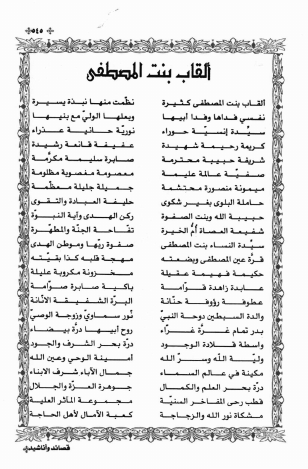 ٥٤٥
ألقاب بنت المصطفى
ألقاب بنت المصطفى كثيرة نظمت منها نبذة يسيرة
نفسي فداها وفدا أبيها وبعلها الولي مع بنيها
سيدة إنسية حوراء نورية حانية عذراء
كريمة رحيمة شهيدة عفيفة قانعة رشيدة
شريفة حبيبة محترمة صابرة سليمة مكرمة
صفية عالمة عليمة معصومة مغصوبة مظلومة
ميمونة منصورة محتشمة جميلة جليلة معظمة
حاملة البلوى بغير شكوى حليفة العبادة والتقوى
حبيبة الله وبنت الصفوة ركن الهدى وآية النبوة
شفيعة العصاة أم الخيرة تفاحة الجنة والمطهرة
سيدة النساء بنت المصطفى صفوة ربها وموطن الهدى
قرة عين المصطفى وبضعته مهجة قلبه كذا بقيته
حكيمة فهيمة عقيلة محزونة مكروبة عليلة
عابدة زاهدة قوامة باكية صابرة صوامة
عطوفة رؤوفة حنانة البرة الشفيقة الأنانة
والدة السبطين دوحة النبي نور سماوي وزوجة الوصي
بدر تمام غرة غراء روح أبيها درة بيضاء
واسطة قلادة الوجود درة بحر الشرف والجود
ولية الله وسر الله أمينة الوحي وعين الله
مكينة في عالم السماء جمال الآباء شرف الأبناء
درة بحر العلم والكمال جوهرة العزة والجلال
قطب رحى المفاخر السنية مجموعة المآثر العلية
مشكاة نور الله والزجاجة كعبة الآمال لأهل الحاجة
قصائد وأناشيد